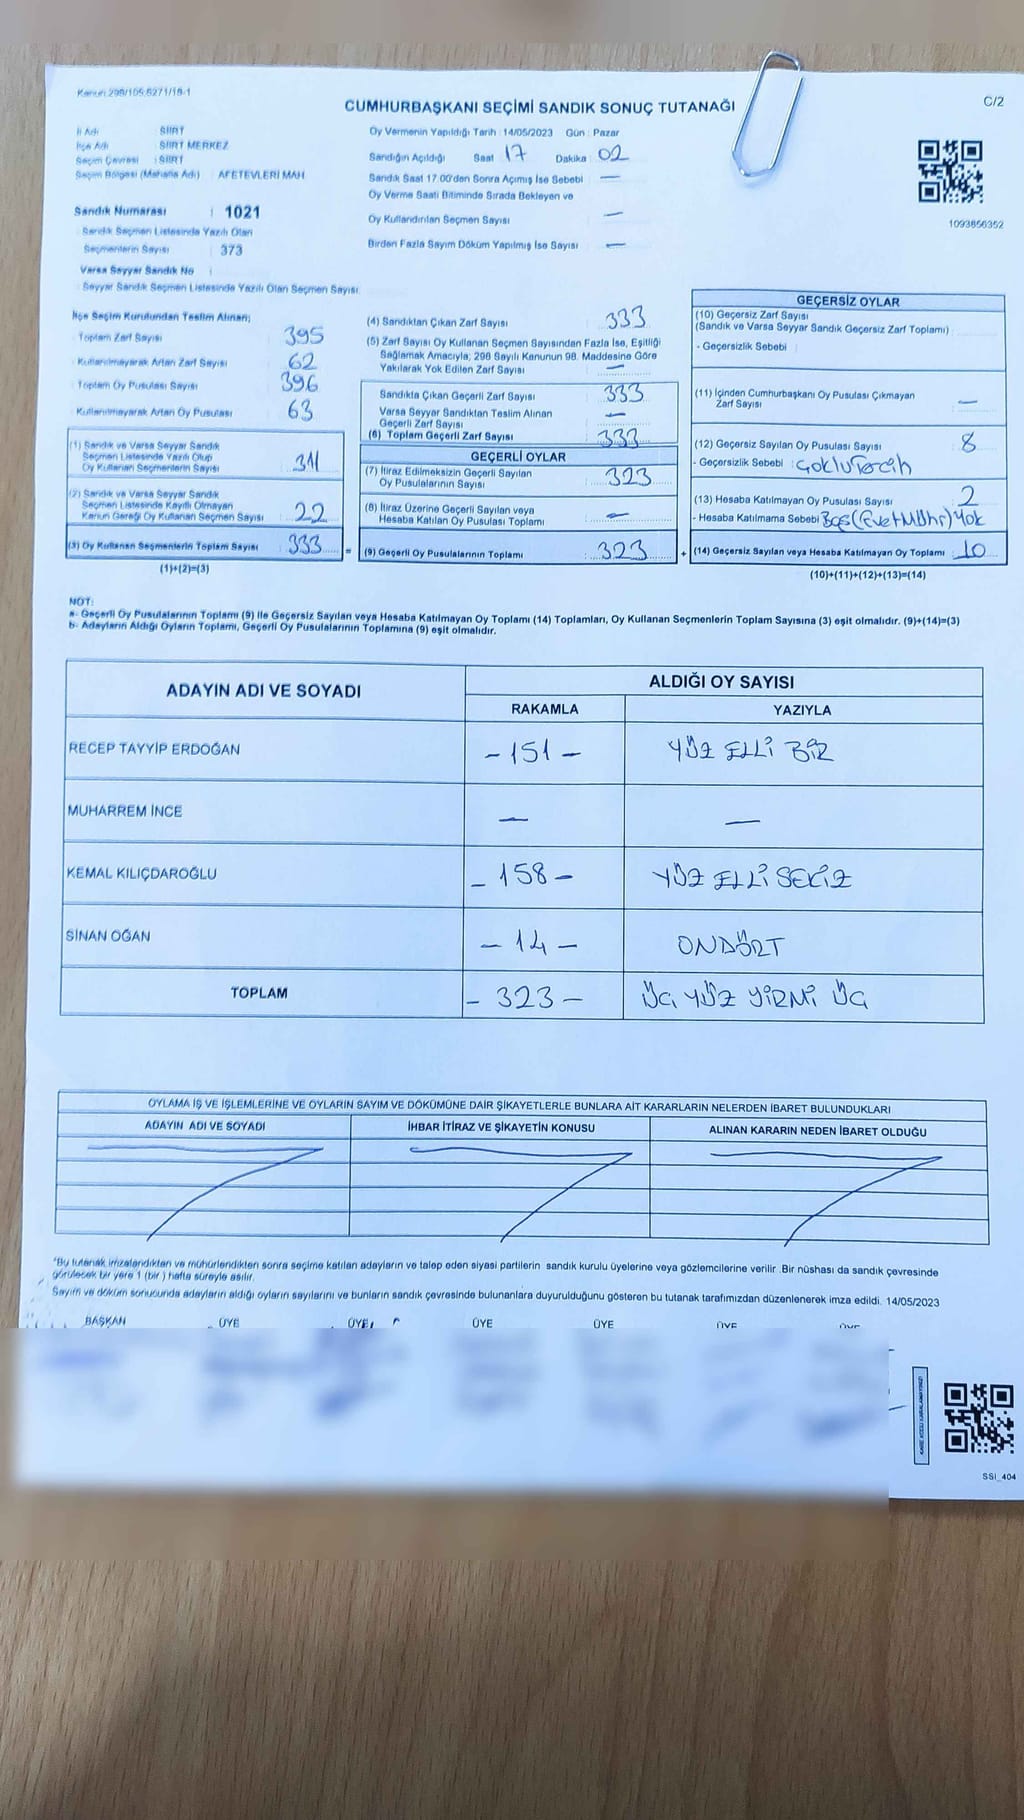 Kanun:298/105,6271/18-1
CUMHURBAŞKANI SEÇİMİ SANDIK SONUÇ TUTANAĞI
C/2
İl Adı : SİİRT
İlçe Adı : SİİRT MERKEZ
Seçim Çevresi : SİİRT
Seçim Bölgesi (Mahalle Adı) : AFETEVLERİ MAH.
Sandık Numarası : 1021
Sandık Seçmen Listesinde Yazılı Olan
Seçmenlerin Sayısı : 373
Varsa Seyyar Sandık No :
Seyyar Sandık Seçmen Listesinde Yazılı Olan Seçmen Sayısı:
Oy Vermenin Yapıldığı Tarih : 14/05/2023 Gün : Pazar
Sandığın Açıldığı Saat 17 Dakika : 02
Sandık Saat 17.00'den Sonra Açımış İse Sebebi : —
Oy Verme Saati Bitiminde Sırada Bekleyen ve
Oy Kullandırılan Seçmen Sayısı : —
Birden Fazla Sayım Döküm Yapılmış İse Sayısı : —
1093856352
İlçe Seçim Kurulundan Teslim Alınan;
Toplam Zarf Sayısı : 395
Kullanılmayarak Artan Zarf Sayısı : 62
Toplam Oy Pusulası Sayısı : 396
Kullanılmayarak Artan Oy Pusulası : 63
(1) Sandık ve Varsa Seyyar Sandık
Seçmen Listesinde Yazılı Olup
Oy Kullanan Seçmenlerin Sayısı : 311
(2) Sandık ve Varsa Seyyar Sandık
Seçmen Listesinde Kayıtlı Olmayan
Kanun Gereği Oy Kullanan Seçmen Sayısı : 22
(3) Oy Kullanan Seçmenlerin Toplam Sayısı : 333 =
(1)+(2)=(3)
(4) Sandıktan Çıkan Zarf Sayısı : 333
(5) Zarf Sayısı Oy Kullanan Seçmen Sayısından Fazla İse, Eşitliği
Sağlamak Amacıyla; 298 Sayılı Kanunun 98. Maddesine Göre
Yakılarak Yok Edilen Zarf Sayısı : —
Sandıkta Çıkan Geçerli Zarf Sayısı : 333
Varsa Seyyar Sandıktan Teslim Alınan
Geçerli Zarf Sayısı : —
(6) Toplam Geçerli Zarf Sayısı : 333
GEÇERLİ OYLAR
(7) İtiraz Edilmeksizin Geçerli Sayılan
Oy Pusulalarının Sayısı : 323
(8) İtiraz Üzerine Geçerli Sayılan veya
Hesaba Katılan Oy Pusulası Toplamı : —
(9) Geçerli Oy Pusulalarının Toplamı : 323 +
GEÇERSİZ OYLAR
(10) Geçersiz Zarf Sayısı
(Sandık ve Varsa Seyyar Sandık Geçersiz Zarf Toplamı) :
- Geçersizlik Sebebi :
(11) İçinden Cumhurbaşkanı Oy Pusulası Çıkmayan
Zarf Sayısı : —
(12) Geçersiz Sayılan Oy Pusulası Sayısı : 8
- Geçersizlik Sebebi : Çoklu Tercih
(13) Hesaba Katılmayan Oy Pusulası Sayısı : 2
- Hesaba Katılmama Sebebi : Boş (Evet Mührü) Yok
(14) Geçersiz Sayılan veya Hesaba Katılmayan Oy Toplamı : 10
(10)+(11)+(12)+(13)=(14)
NOT:
a- Geçerli Oy Pusulalarının Toplamı (9) ile Geçersiz Sayılan veya Hesaba Katılmayan Oy Toplamı (14) Toplamları, Oy Kullanan Seçmenlerin Toplam Sayısına (3) eşit olmalıdır. (9)+(14)=(3)
b- Adayların Aldığı Oyların Toplamı, Geçerli Oy Pusulalarının Toplamına (9) eşit olmalıdır.
ADAYIN ADI VE SOYADI
ALDIĞI OY SAYISI
RAKAMLA YAZIYLA
RECEP TAYYİP ERDOĞAN - 151 - YÜZ ELLİ BİR
MUHARREM İNCE — —
KEMAL KILIÇDAROĞLU - 158 - YÜZ ELLİ SEKİZ
SİNAN OĞAN - 14 - ONDÖRT
TOPLAM - 323 - ÜÇ YÜZ YİRMİ ÜÇ
OYLAMA İŞ VE İŞLEMLERİNE VE OYLARIN SAYIM VE DÖKÜMÜNE DAİR ŞİKAYETLERLE BUNLARA AİT KARARLARIN NELERDEN İBARET BULUNDUKLARI
ADAYIN ADI VE SOYADI İHBAR İTİRAZ VE ŞİKAYETİN KONUSU ALINAN KARARIN NEDEN İBARET OLDUĞU
*Bu tutanak imzalandıktan ve mühürlendikten sonra seçime katılan adayların ve talep eden siyasi partilerin sandık kurulu üyelerine veya gözlemcilerine verilir .Bir nüshası da sandık çevresinde
görülecek bir yere 1 (bir ) hafta süreyle asılır.
Sayım ve döküm sonucunda adayların aldığı oyların sayılarını ve bunların sandık çevresinde bulunanlara duyurulduğunu gösteren bu tutanak tarafımızdan düzenlenerek imza edildi. 14/05/2023
BAŞKAN ÜYE ÜYE ÜYE ÜYE ÜYE ÜYE
SSI_404